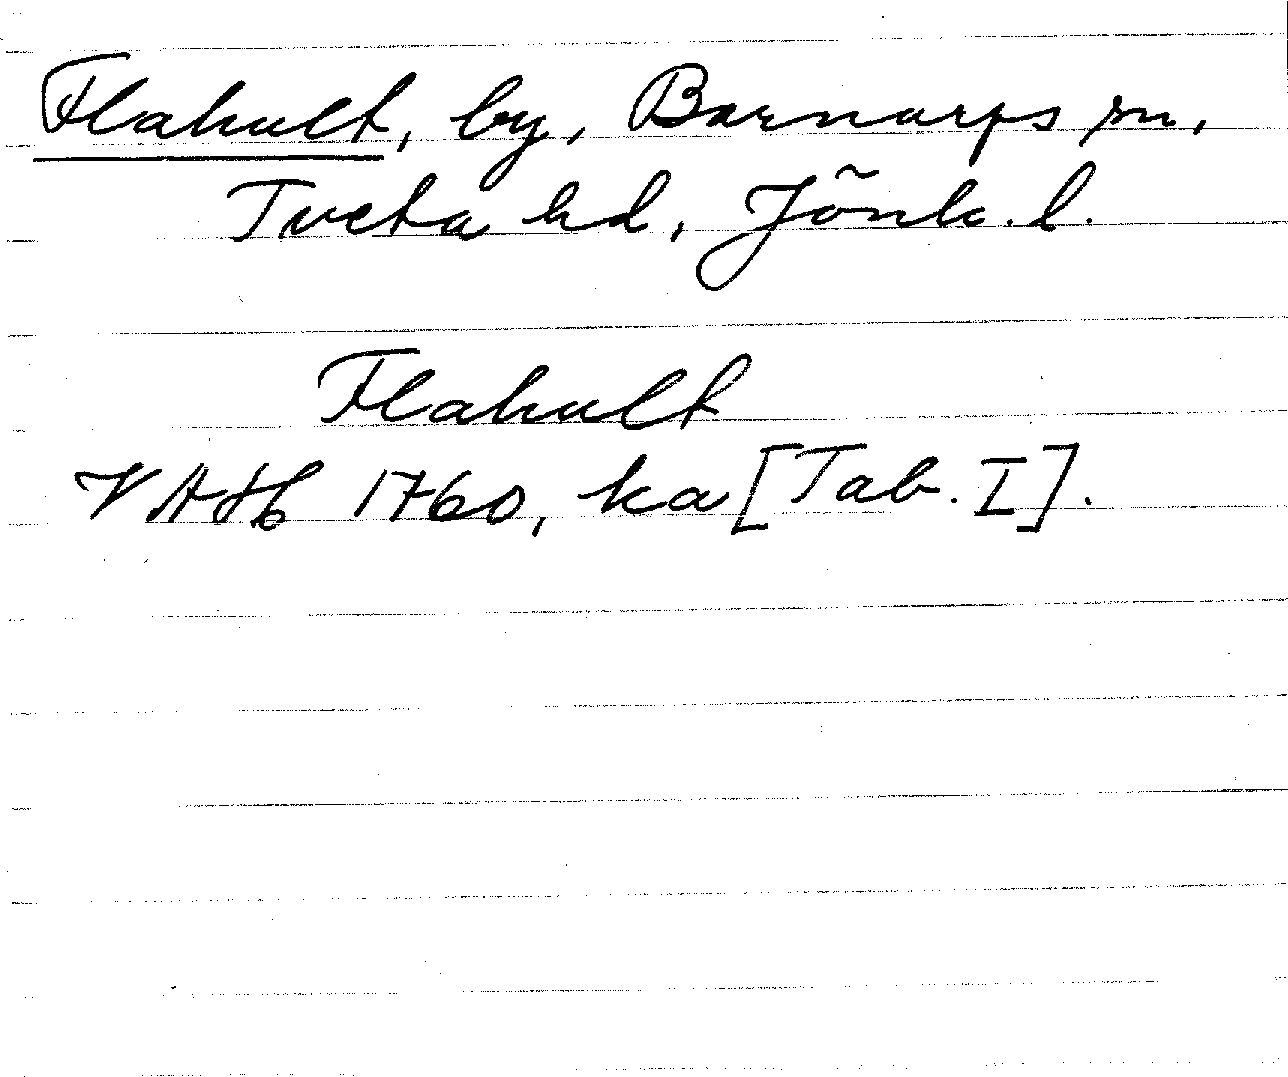 Flahult, by, Barnarps sn,
Tveta hd, Jönk. l.
Flahult
VAH 1760, ka [Tab. I].